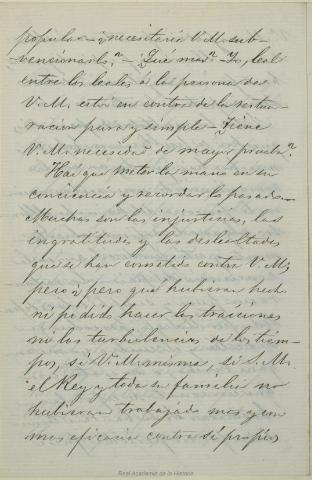 popular — ¿necesitaria V.M. sub-
vencionarlo? — ¿Qué mas? Yo, leal
entre los leales á la persona de
V.M. estoy en contra de la restau-
racion pura y simple — ¿Tiene
V.M. necesidad de mayor prueba?
Hai que meter la mano en su
conciencia y recordar lo pasado —
Muchas son las injusticias, las
ingratitudes y las deslealtades
que se han cometido contra V.M;
pero ¿pero qué hubieran hech
ni podido hacer las traiciones
ni las turbulencias de los tiem-
pos, si V.M. misma, si S.M.
el Rey y toda su familia no
hubieran trabajado mas y con
mas eficacia contra sí propios
Real Academia de la Historia